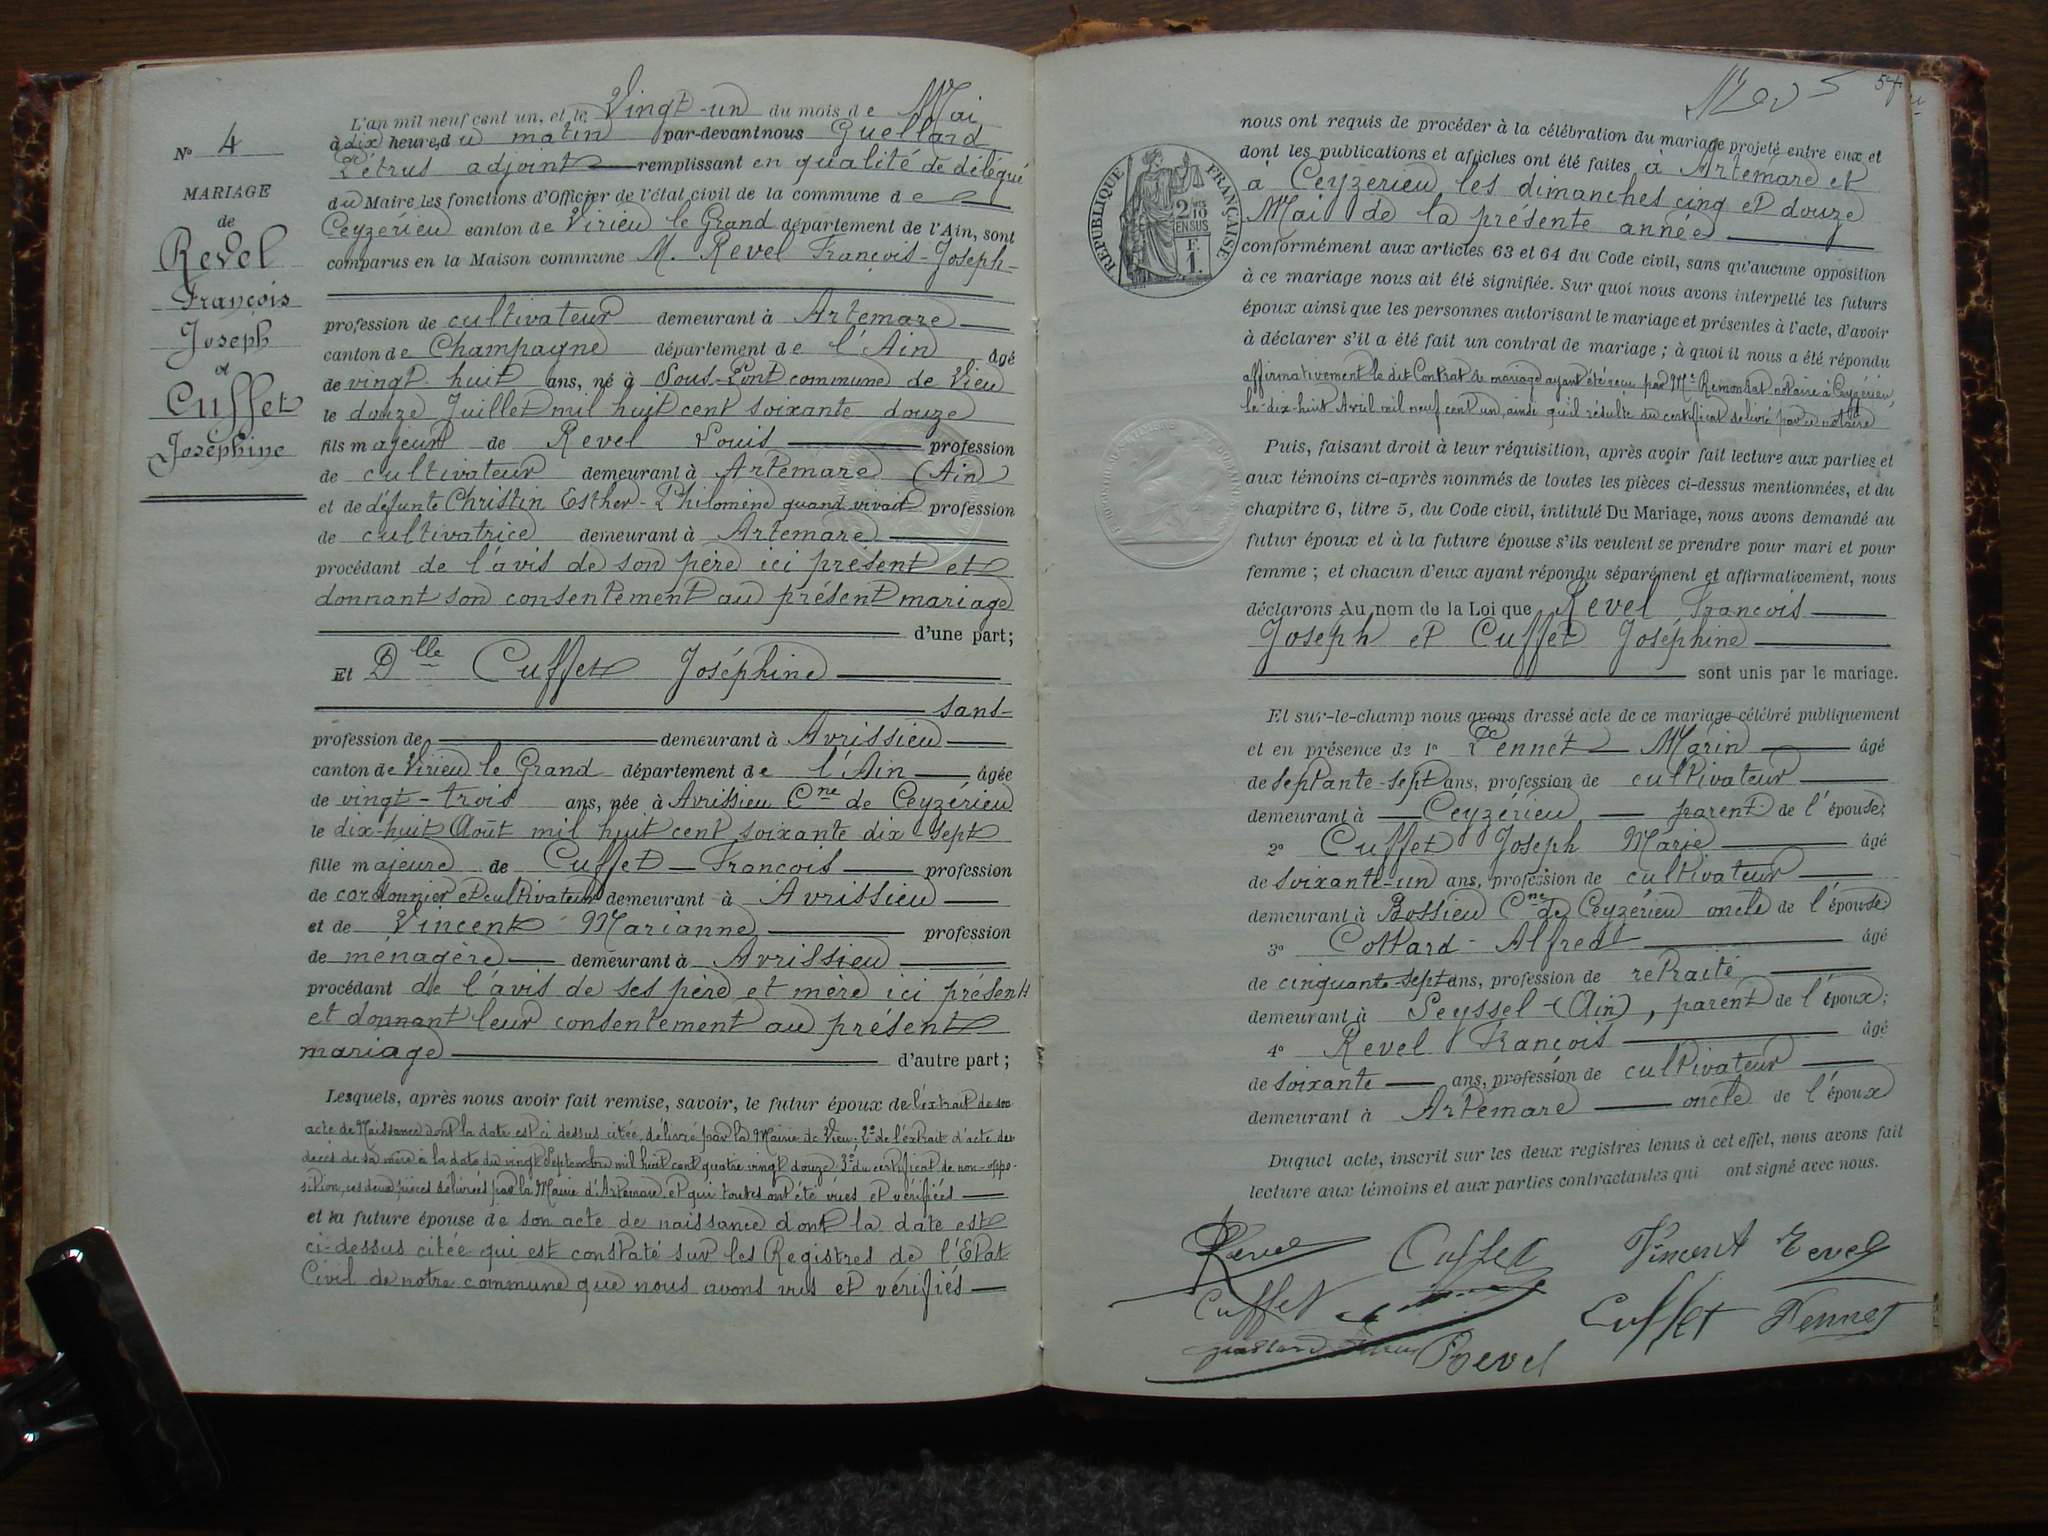 N° 4
MARIAGE
de
Revel
François
Joseph
et
Cuffet
Joséphine
L'an mil neuf cent un, et le Vingt-un du mois de Mai
à dix heures du matin par-devant nous Guellard
Pétrus adjoint remplissant en qualité de délégué
du Maire les fonctions d'Officier de l'état civil de la commune de
Ceyzérieu canton de Virieu le Grand département de l'Ain, sont
comparus en la Maison commune M. Revel François-Joseph-
profession de cultivateur demeurant à Artemare
canton de Champagne département de l'Ain âgé
de vingt-huit ans, né à Sous-Pont commune de Vieu
le douze Juillet mil huit cent soixante douze
fils majeur de Revel Louis profession
de cultivateur demeurant à Artemare (Ain
et de défunte Christin Esther-Philomène quand vivait profession
de cultivatrice demeurant à Artemare
procédant de l'avis de son père ici présent et
donnant son consentement au présent mariage
d'une part;
Et Dlle Cuffet Joséphine
sans-
profession de demeurant à Avrissieu
canton de Virieu le Grand département de l'Ain âgée
de vingt-trois ans, née à Avrissieu Cne de Ceyzérieu
le dix-huit Août mil huit cent soixante dix-sept
fille majeure de Cuffet François profession
de cordonnier et cultivateur demeurant à Avrissieu
et de Vincent Marianne profession
de ménagère demeurant à Avrissieu
procédant de l'avis de ses père et mère ici présents
et donnant leur consentement au présent
mariage d'autre part;
Lesquels, après nous avoir fait remise, savoir, le futur époux de l'extrait de son
acte de Naissance dont la date est ci dessus citée, délivré par la Mairie de Vieu. 2° de l'extrait d'acte de
décès de sa mère à la date du vingt Septembre mil huit cent quatre vingt douze 3° du certificat de non-oppo-
sition, ces deux pièces délivrées par la Mairie d'Artemare et qui toutes ont été vues et vérifiées
et la future épouse de son acte de naissance dont la date est
ci-dessus citée qui est constaté sur les Registres de l'Etat
Civil de notre commune que nous avons vus et vérifiés
57
nous ont requis de procéder à la célébration du mariage projeté entre eux et
dont les publications et affiches ont été faites à Artemare et
à Ceyzerieu les dimanches cinq et douze
Mai de la présente année
conformément aux articles 63 et 64 du Code civil, sans qu'aucune opposition
à ce mariage nous ait été signifiée. Sur quoi nous avons interpellé les futurs
époux ainsi que les personnes autorisant le mariage et présentes à l'acte, d'avoir
à déclarer s'il a été fait un contrat de mariage; à quoi il nous a été répondu
affirmativement le dit Contrat de mariage ayant été reçu par Me Remontat notaire à Ceyzérieu,
le dix-huit Avril mil neuf cent un, ainsi qu'il résulte du certificat delivré par ce notaire
RÉPUBLIQUE FRANÇAISE
2/10 EN SUS
1 F.
Puis, faisant droit à leur réquisition, après avoir fait lecture aux parties et
aux témoins ci-après nommés de toutes les pièces ci-dessus mentionnées, et du
chapitre 6, titre 5, du Code civil, intitulé Du Mariage, nous avons demandé au
futur époux et à la future épouse s'ils veulent se prendre pour mari et pour
femme; et chacun d'eux ayant répondu séparément et affirmativement, nous
déclarons Au nom de la Loi que Revel François
Joseph et Cuffet Joséphine
sont unis par le mariage.
Et sur-le-champ nous avons dressé acte de ce mariage célébré publiquement
et en présence de 1° Pennet Marin âgé
de septante-sept ans, profession de cultivateur
demeurant à Ceyzérieu, parent de l'épouse;
2° Cuffet Joseph Marie âgé
de soixante-un ans, profession de cultivateur
demeurant à Bossieu Cne de Ceyzérieu oncle de l'épouse
3° Cottard-Alfred âgé
de cinquante-sept ans, profession de retraité
demeurant à Seyssel-(Ain), parent de l'époux;
4° Revel François âgé
de soixante ans, profession de cultivateur
demeurant à Artemare oncle de l'époux
Duquel acte, inscrit sur les deux registres tenus à cet effet, nous avons fait
lecture aux témoins et aux parties contractantes qui ont signé avec nous.
Revel Cuffet Vincent Revel
Cuffet Cuffet Pennet
Guellard Pétrus Revel